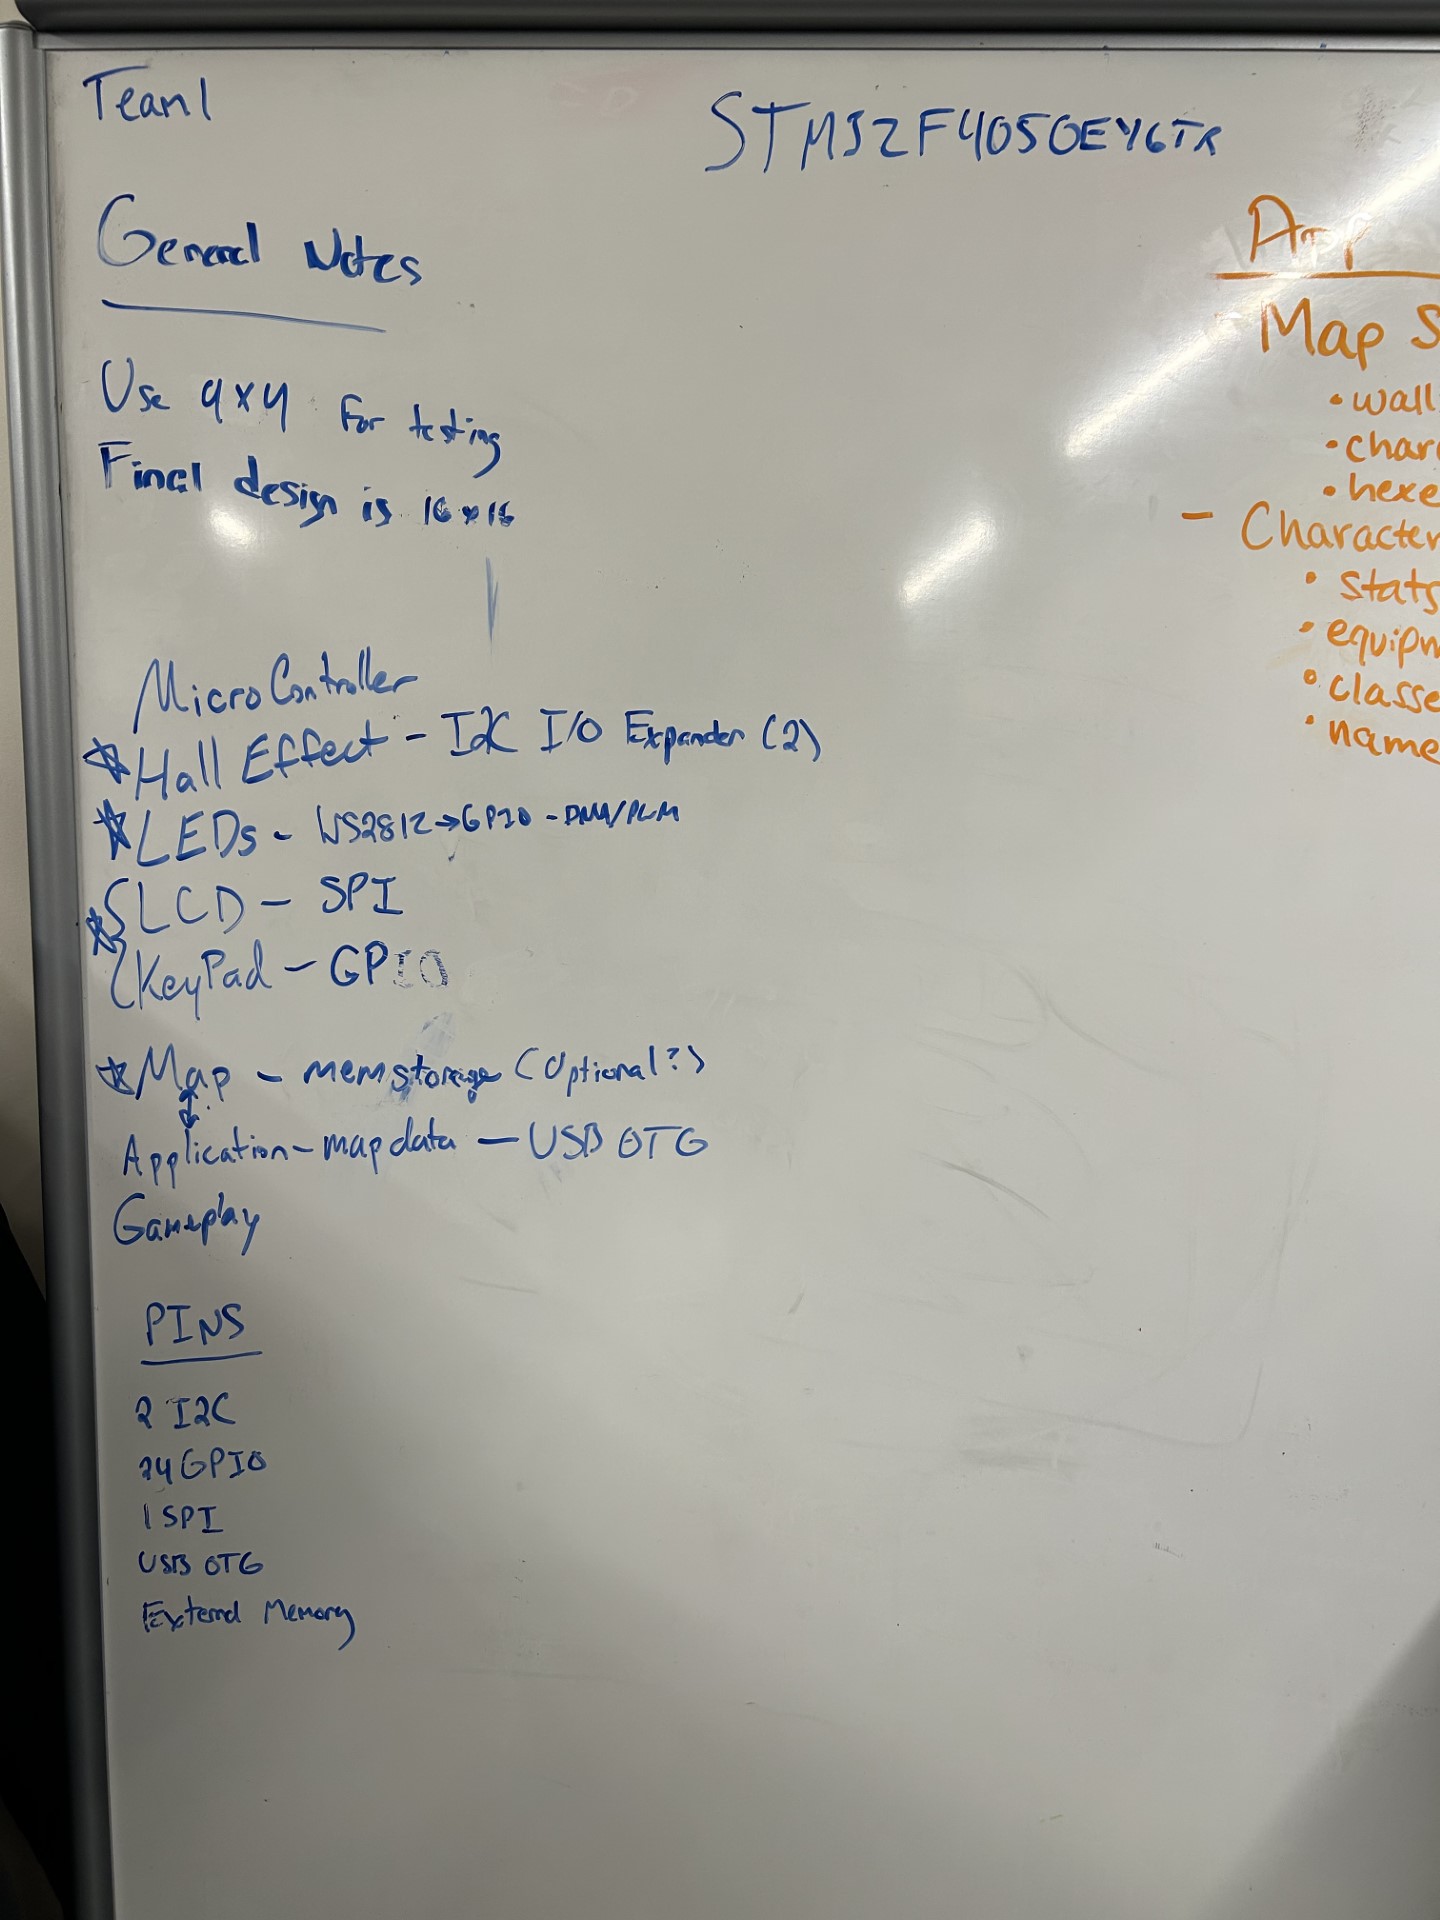 Team 1
STM32F405OEY6TR
General Notes
Use 4x4 for testing
Final design is 16x16
MicroController
Hall Effect - I2C I/O Expander (2)
LEDs - WS2812→GPIO - DMA/PWM
LCD - SPI
KeyPad - GPIO
Map - mem storage (Optional?)
Application - map data - USB OTG
Gameplay
PINS
2 I2C
24 GPIO
1 SPI
USB OTG
External Memory
App
Map S
• wall
• char
• hexe
- Character
• stats
• equipm
• classe
• name